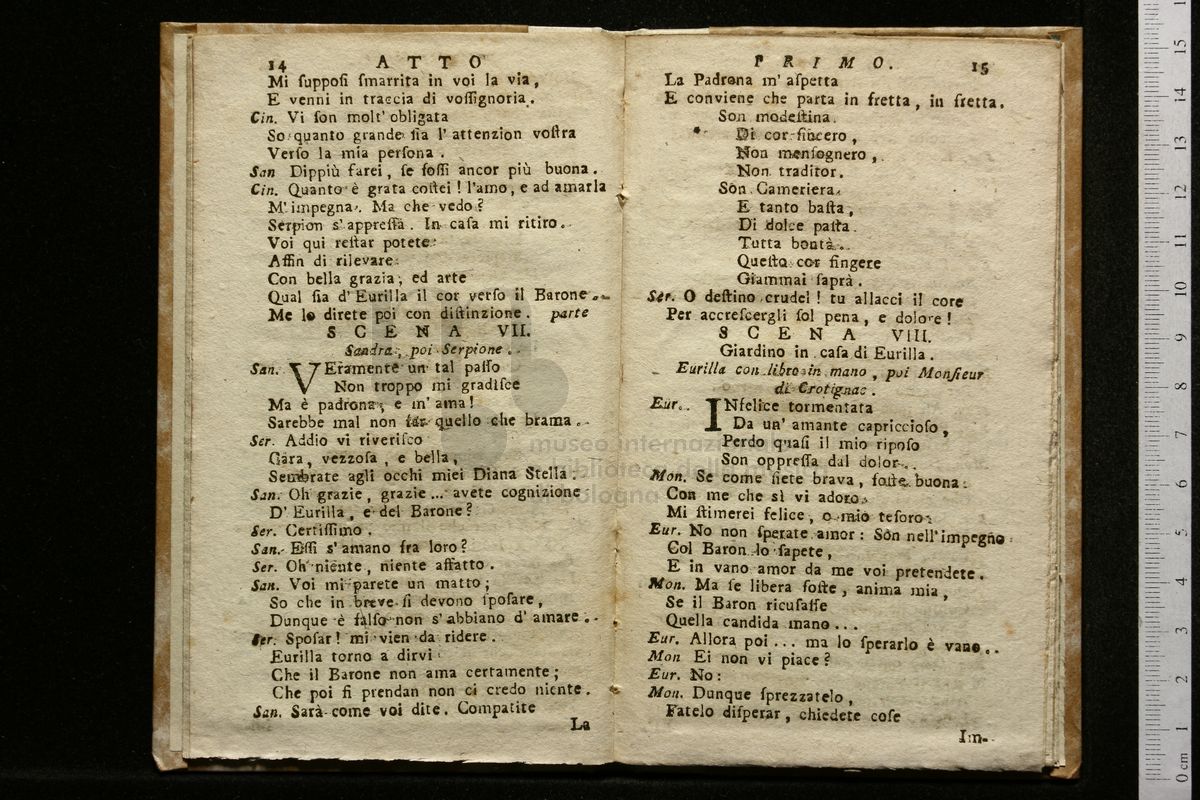 14 ATTO
Mi ſuppoſi ſmarrita in voi la via,
E venni in traccia di voſſignoria.
Cin. Vi ſon molt' obligata
So quanto grande ſia l' attenzion voſtra
Verſo la mia perſona.
San Dippiù farei, ſe foſſi ancor più buona.
Cin. Quanto è grata coſtei! l'amo, e ad amarla
M' impegna. Ma che vedo?
Serpion s' appreſſa. In caſa mi ritiro.
Voi qui reſtar potete
Affin di rilevare
Con bella grazia, ed arte
Qual ſia d' Eurilla il cor verſo il Barone
Me lo direte poi con diſtinzione. parte
SCENA VII.
Sandra, poi Serpione.
San. VEramente un tal paſſo
Non troppo mi gradiſce
Ma è padrona, e m' ama!
Sarebbe mal non far quello che brama.
Ser. Addio vi riveriſco
Cara, vezzoſa, e bella,
Sembrate agli occhi miei Diana Stella.
San. Oh grazie, grazie ... avete cognizione
D' Eurilla, e del Barone?
Ser. Certiſſimo.
San. Eſſi s' amano fra loro?
Ser. Oh niente, niente affatto.
San. Voi mi parete un matto;
So che in breve ſi devono ſpoſare,
Dunque è falſo non s' abbiano d' amare.
Ser. Spoſar! mi vien da ridere.
Eurilla torno a dirvi
Che il Barone non ama certamente;
Che poi ſi prendan non ci credo niente.
San. Sarà come voi dite. Compatite
La
PRIMO. 15
La Padrona m' aſpetta
E conviene che parta in fretta, in fretta.
Son modeſtina.
Di cor ſincero,
Non menſognero,
Non traditor.
Son Cameriera
E tanto baſta,
Di dolce paſta
Tutta bontà.
Queſto cor fingere
Giammai ſaprà.
Ser. O deſtino crudel! tu allacci il core
Per accreſcergli ſol pena, e dolore!
SCENA VIII.
Giardino in caſa di Eurilla.
Eurilla con libro in mano, poi Monſieur
di Crotignac.
Eur. INfelice tormentata
Da un' amante capriccioſo,
Perdo quaſi il mio ripoſo
Son oppreſſa dal dolor.
Mon. Se come ſiete brava, foſte buona
Con me che sì vi adoro
Mi ſtimerei felice, o mio teſoro
Eur. No non ſperate amor: Són nell' impegno
Col Baron lo ſapete,
E in vano amor da me voi pretendete.
Mon. Ma ſe libera foſte, anima mia,
Se il Baron ricuſaſſe
Quella candida mano...
Eur. Allora poi ... ma lo ſperarlo è vano..
Mon Ei non vi piace?
Eur. No:
Mon. Dunque ſprezzatelo,
Fatelo diſperar, chiedete coſe
Im-